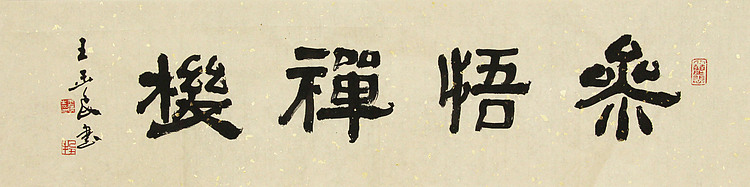 參悟禪機
王玉良書